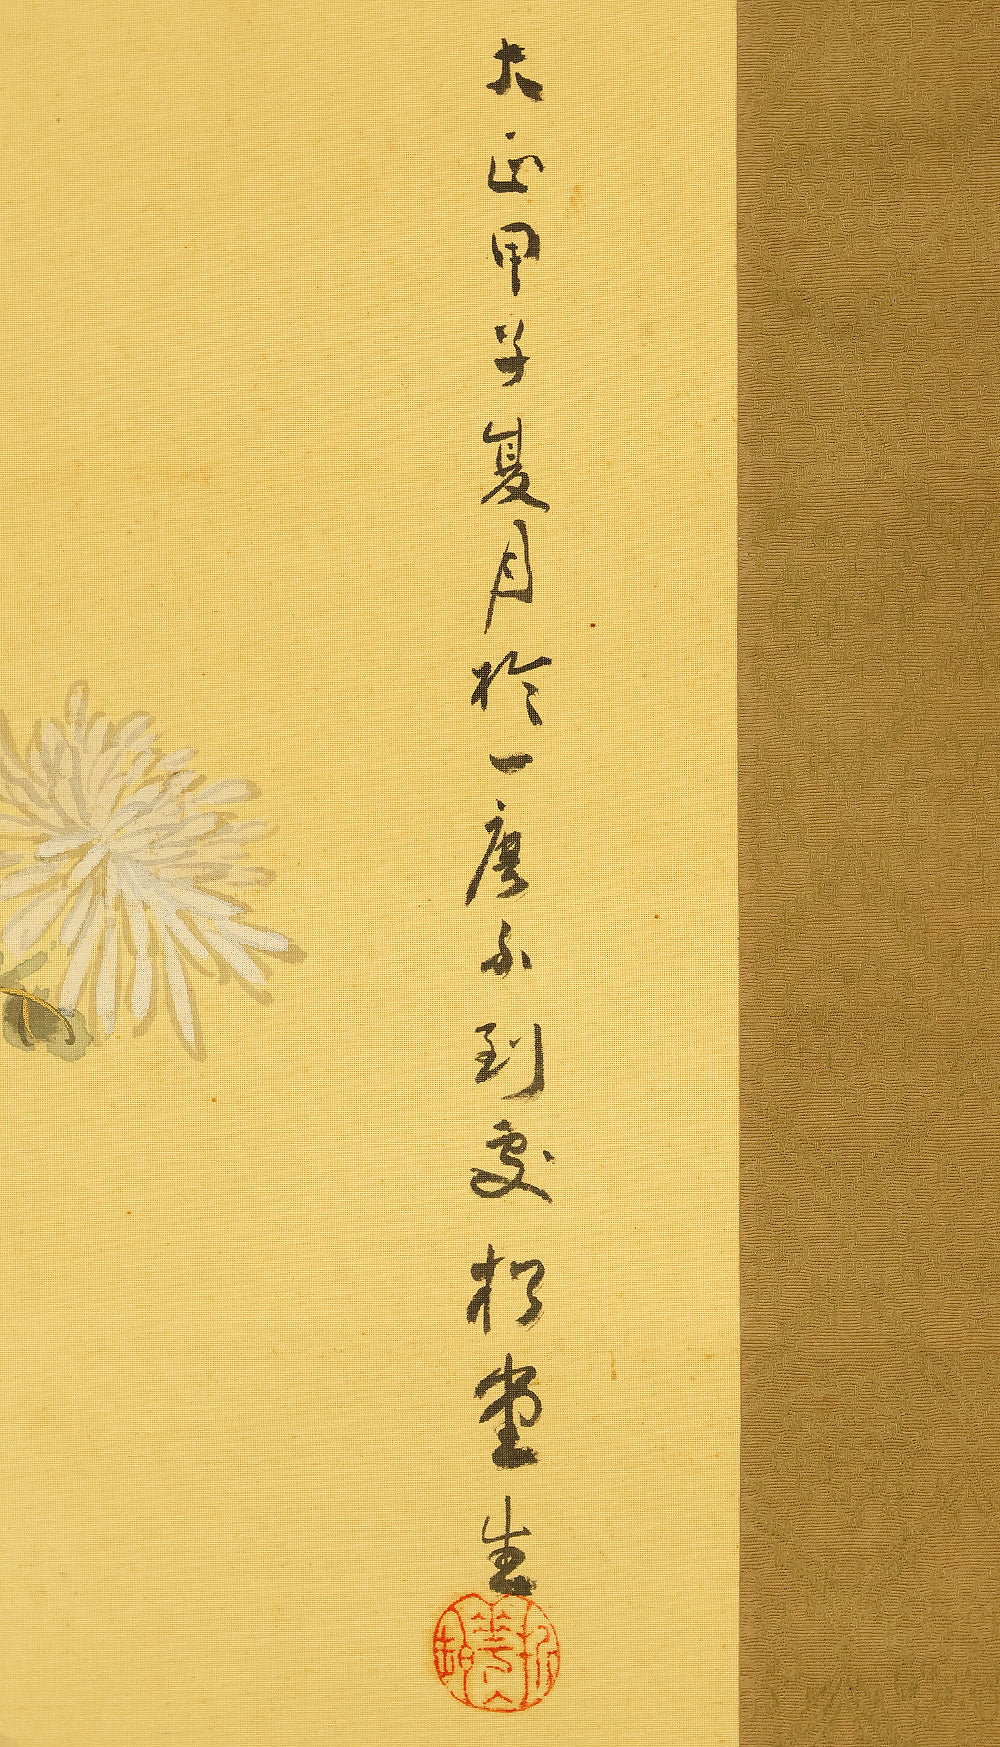 大正甲子夏月於一塵不到處 松堂生